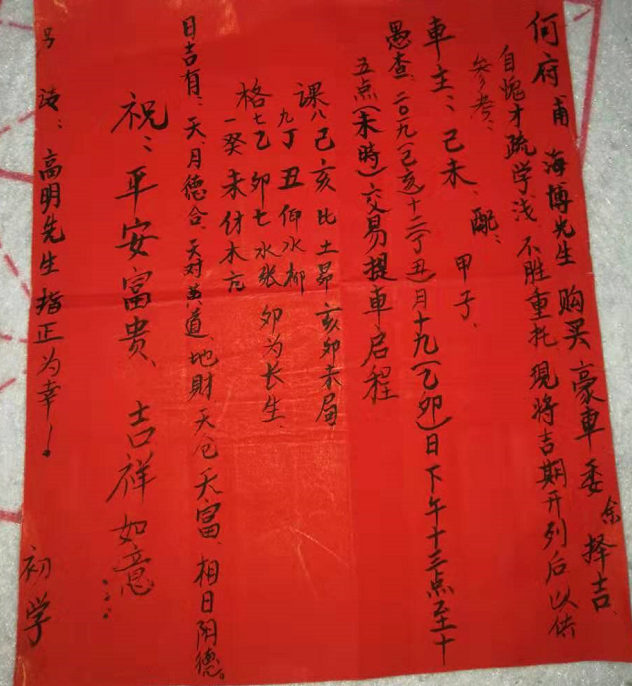 何府 甫 海博先生 购买豪車委余择吉、
自愧才疏学浅、不胜重托 现将吉期开列后以供
参考:
車主:己未、配:甲子、
愚查:二〇一九(己亥)十二(丁丑)月十九(乙卯)日下午十三点至十
五点(未時)交易提車启程
课八己亥 比土昴 亥卯未局
九丁丑 仰水柳
格七乙卯 七水张 卯为长生、
一癸未 伐木亢
日吉有:天、月德合、天对黄道、地財 天仓 天富、相日阴德。
祝:平安富贵、吉祥如意
另 请:高明先生 指正为幸!
初学